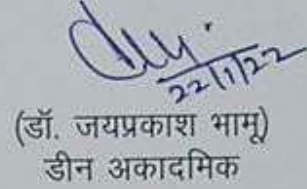 22/1/22
(डॉ. जयप्रकाश भामू)
डीन अकादमिक